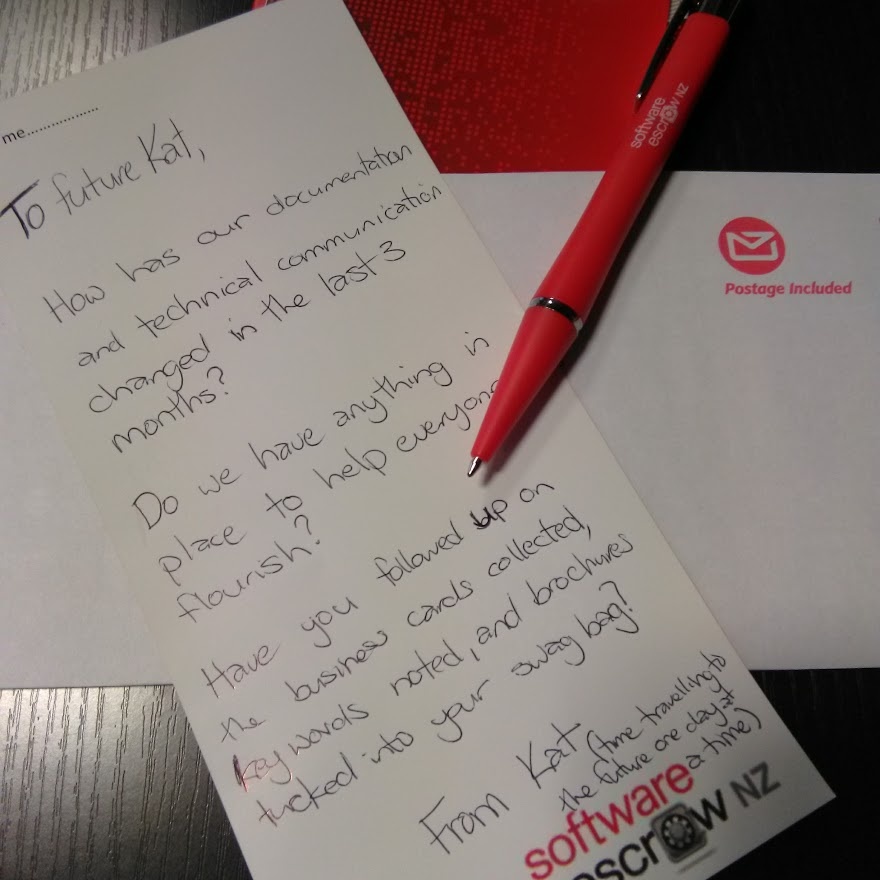 me..................
To future Kat,
How has our documentation
and technical communication
changed in the last 3
months?
Do we have anything in
place to help everyone
flourish?
Have you followed up on
the business cards collected,
key words noted, and brochures
tucked into your swag bag?
From Kat (time travelling to
the future one day at
a time)
software
escrow NZ
software
escrow NZ
Postage Included